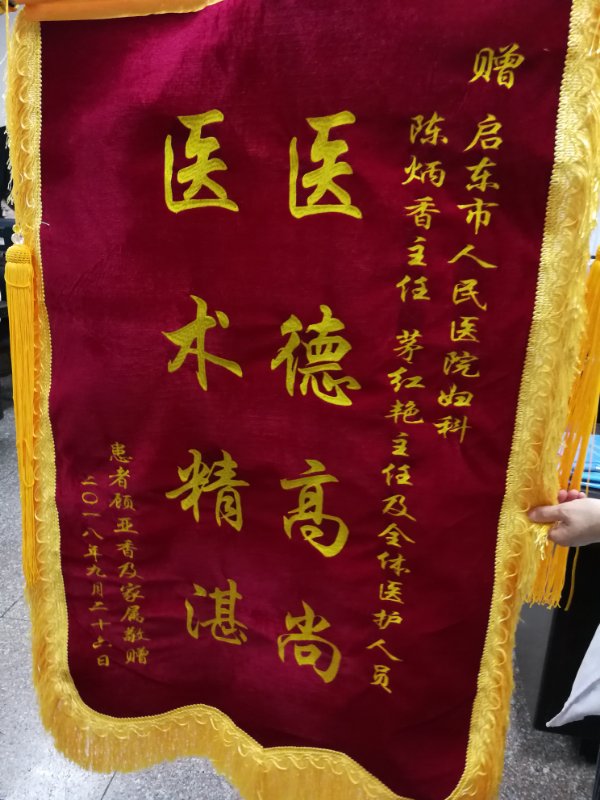 赠 启东市人民医院妇科
陈炳香主任 茅红艳主任及全体医护人员
医德高尚
医术精湛
患者顾亚香及家属敬赠
二〇一八年九月二十六日